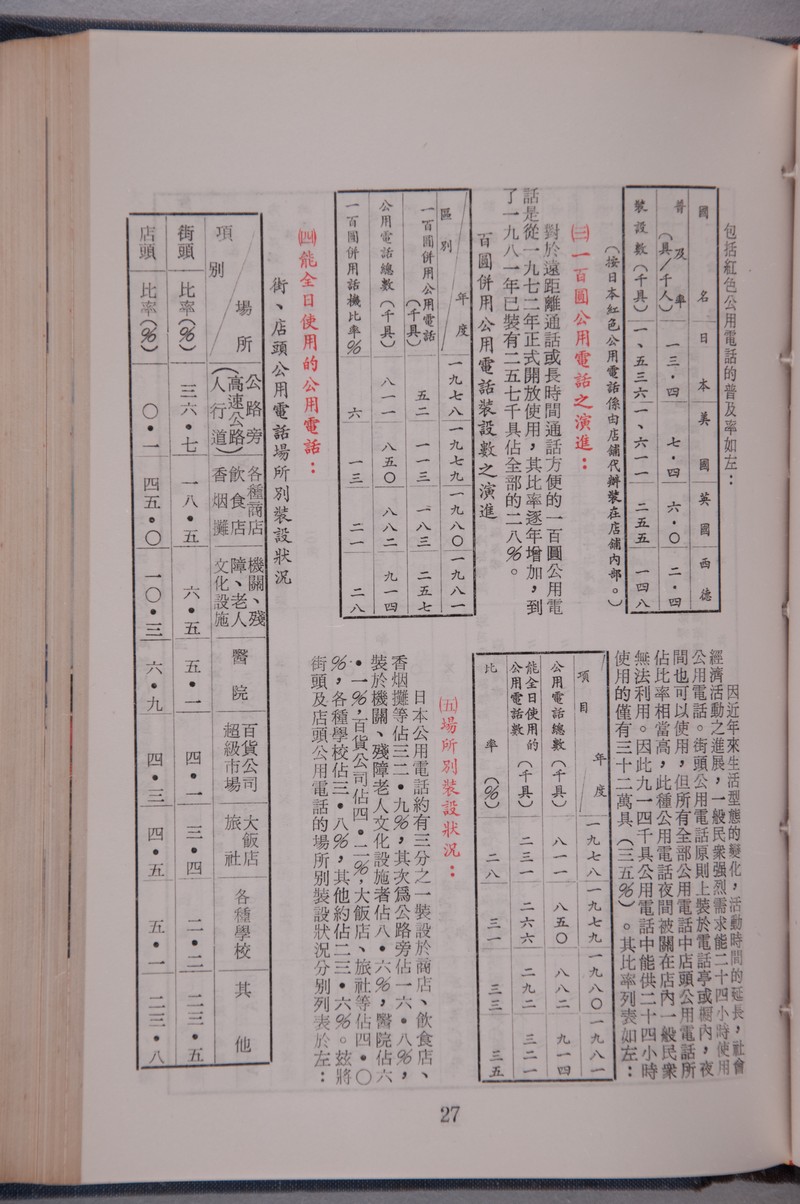 包括紅色公用電話的普及率如左：
國名 日本 美國 英國 西德
普及率（具/千人） 一三・四 七・四 六・〇 二・四
裝設數（千具） 一、五三六 一、六一一 二五五 一四八
（按日本紅色公用電話係由店鋪代辦裝在店鋪內部。）
㈢一百圓公用電話之演進：
對於遠距離通話或長時間通話方便的一百圓公用電
話是從一九七二年正式開放使用，其比率逐年增加，到
了一九八一年已裝有二五七千具佔全部的二八％。
百圓併用公用電話裝設數之演進
區別/年度 一九七八 一九七九 一九八〇 一九八一
一百圓併用公用電話（千具） 五二 一一三 一八三 二五七
公用電話總數（千具） 八一一 八五〇 八八二 九一四
一百圓併用話機比率％ 六 一三 二一 二八
㈣能全日使用的公用電話：
因近年來生活型態的變化，活動時間的延長，社會
經濟活動之進展，一般民衆强烈需求能二十四小時使用
公用電話。街頭公用電話原則上裝於電話亭或櫥內，夜
間也可以使用，但所有全部公用電話中店頭公用電話所
佔比率相當高，此種公用電話夜間被關在店內一般民衆
無法利用。因此九一四千具公用電話中能供二十四小時
使用的僅有三十二萬具（三五％）。其比率列表如左：
項目/年度 一九七八 一九七九 一九八〇 一九八一
公用電話總數（千具） 八一一 八五〇 八八二 九一四
能全日使用的公用電話數（千具） 二三一 二六六 二九二 三二一
比率（％） 二八 三一 三三 三五
㈤場所別裝設狀況：
日本公用電話約有三分之一裝設於商店、飲食店、
香烟攤等佔三二・九％，其次爲公路旁佔一六・八％，
裝於機關、殘障老人文化設施者佔八・六％，醫院佔六
・一％，百貨公司佔四・二％，大飯店、旅社等佔四・〇
％，各種學校佔三・八％，其他約佔二三・六％。玆將
街頭及店頭公用電話的場所別裝設狀況分別列表於左：
街、店頭公用電話場所別裝設狀況
項別/場所 公路旁（高速公路人行道） 各種商店飲食店香烟攤 機關、殘障、老人文化設施 醫院 百貨公司超級市場 大飯店旅社 各種學校 其他
街頭比率（％） 三六・七 一八・五 六・五 五・一 四・一 三・四 二・二 二三・五
店頭比率（％） 〇・一 四五・〇 一〇・三 六・九 四・三 四・五 五・一 二三・八
27